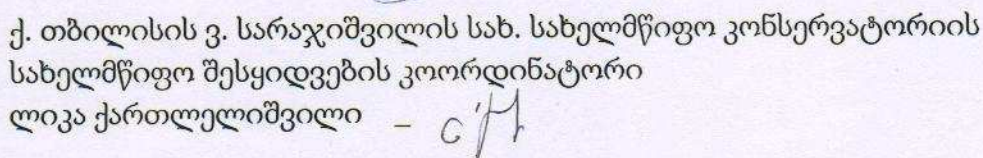 ქ. თბილისის ვ. სარაჯიშვილის სახ. სახელმწიფო კონსერვატორიის
სახელმწიფო შესყიდვების კოორდინატორი
ლიკა ქართლელიშვილი –